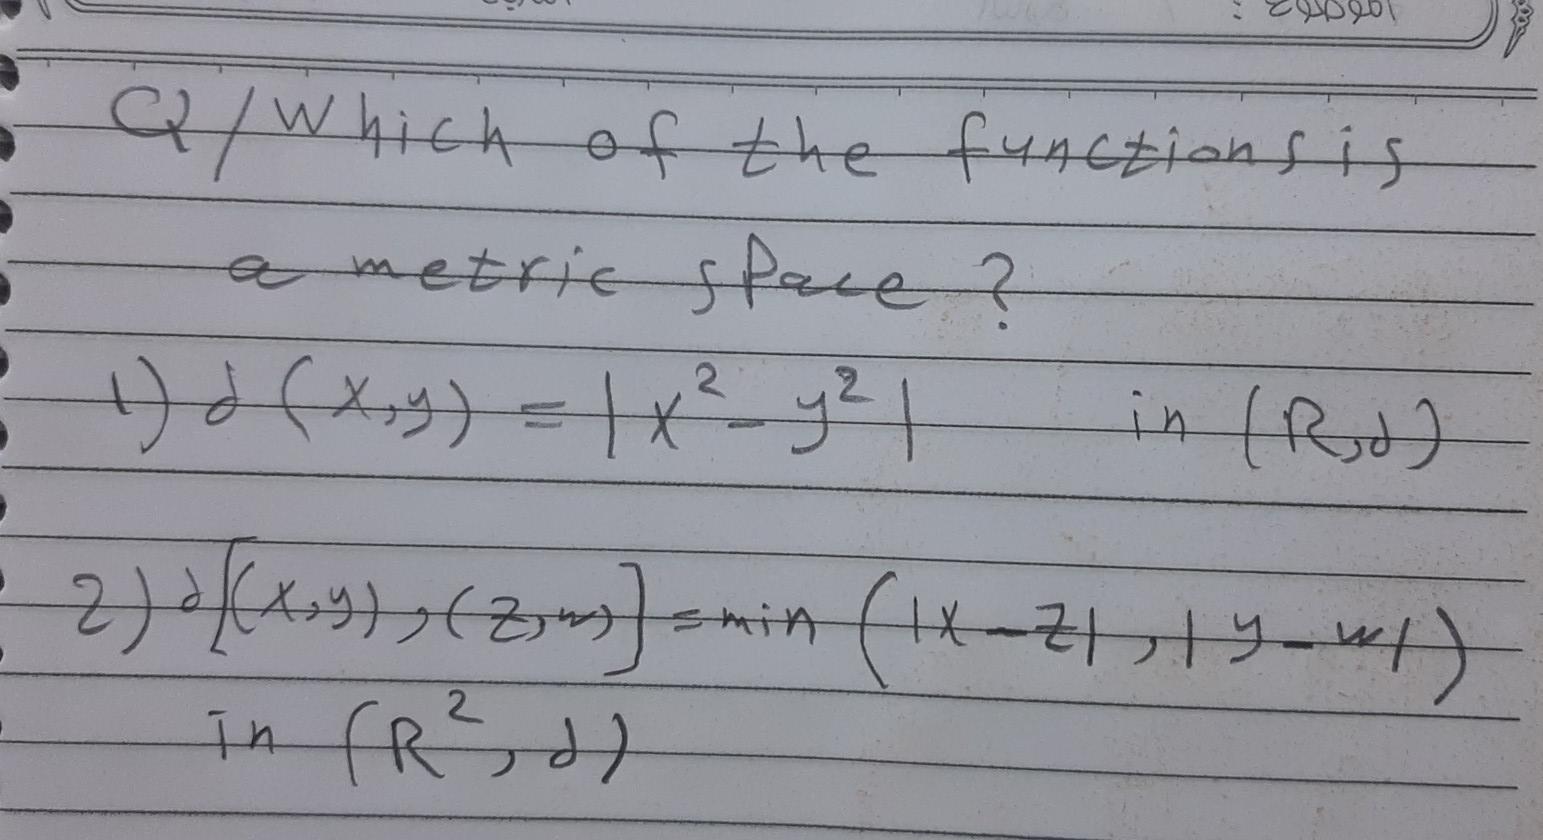 Q/Which of the functions is
a metric space?
1) d(x,y) = |x² - y²| in (R,d)
2) d[(x,y),(z,w)] = min (|x - z|, |y - w|)
in (R², d)